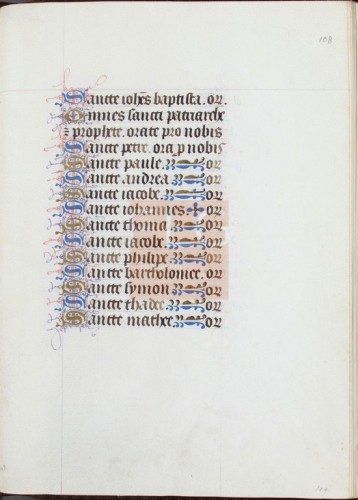 108
Sancte ioh̅es baptista. or̅.
Omnes sancti patriarche
⁊ prophete. orate pro nobis
Sancte petre. ora p nobis
Sancte paule. or̅
Sancte andrea. or̅
Sancte iacobe. or̅
Sancte iohannes or̅
Sancte thoma. or̅
Sancte iacobe. or̅
Sancte philipe. or̅
Sancte bartholomee. or̅
Sancte symon. or̅
Sancte thadee. or̅
Sancte mathee. or̅